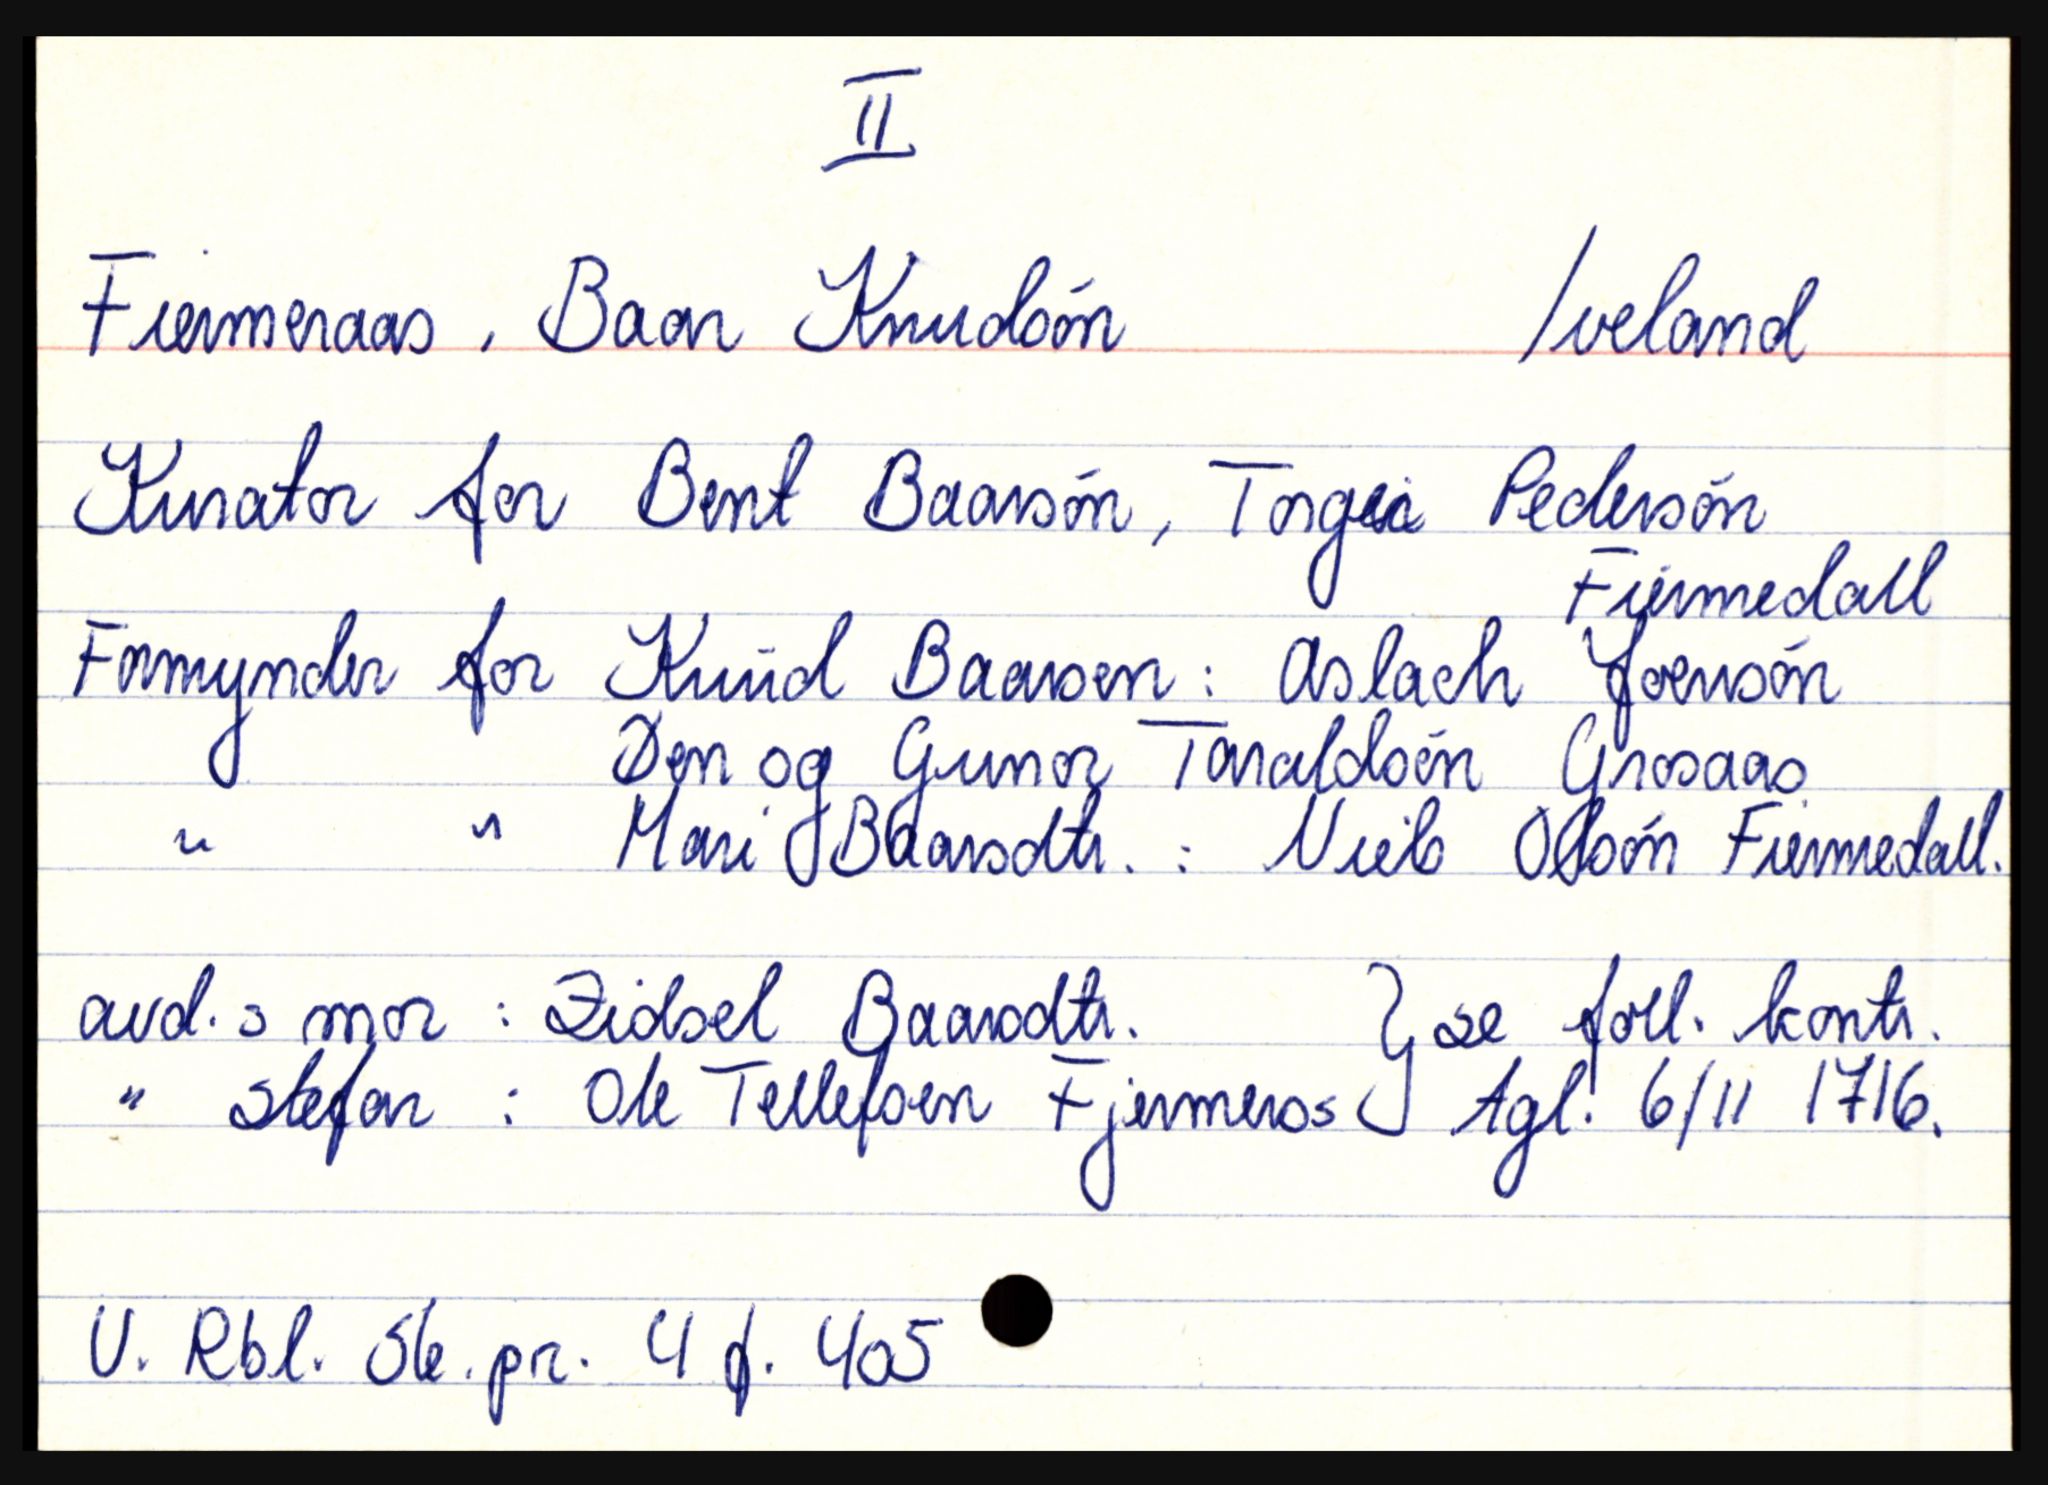 II
Fiermeraas, Baar Knudsón Iveland
Kurator for Bent Baarsón, Torgei Pedersón
Fiermedall
Formynder for Knud Baarsen: Aslach Joensón
Øen og Gunor Taraldsón Grosaas
" " Mari Baarsdtr. : Niels Olsón Fiermedall.
avd.s mor : Zidsel Baarsdtr. } se foll. kontr.
" stefar : Ole Tellefsen Fjermeros } tgl. 6/11 1716.
V. Rbl. Sk. pr. 4 f. 405